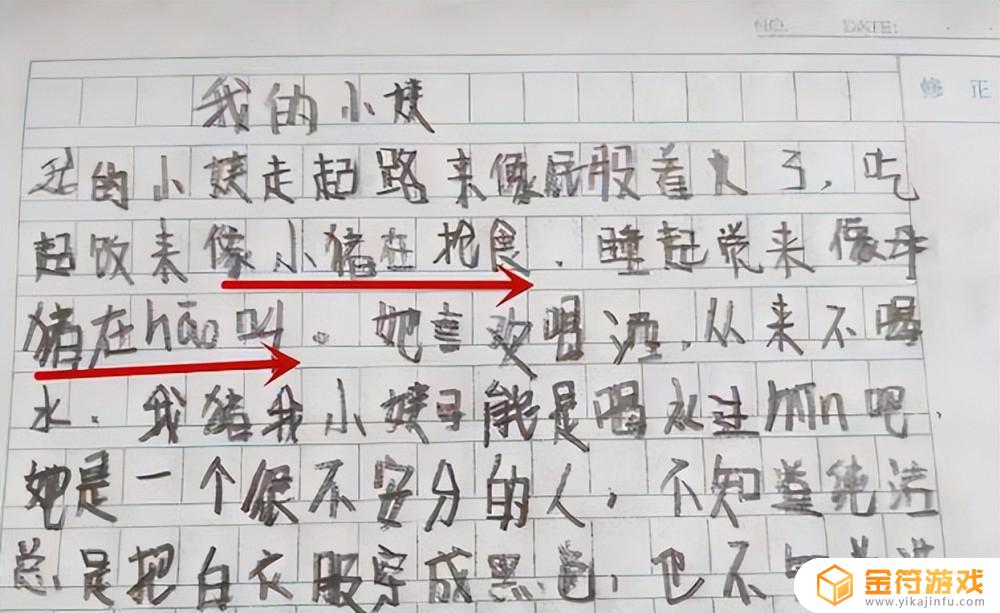 NO. DATE:
修 正
我的小姨
我的小姨走起路来像屁股着火了，吃
起饭来像小猪在抢食、睡起觉来像母
猪在hāo叫。她喜欢喝酒，从来不喝
水、我猪我小姨可能是喝水过mǐn吧，
她是一个很不安分的人，不知道纯洁
总是把白衣服穿成黑色，也不
金符游戏
www.yikajinfu.com